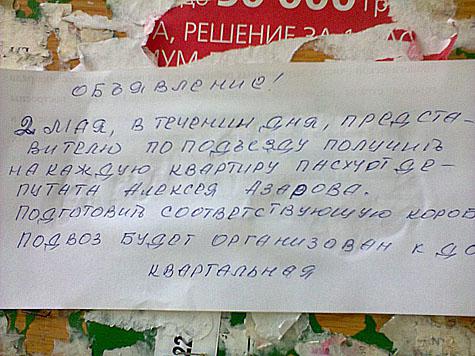 до 50 000 гр
А, РЕШЕНИЕ ЗА 1 ЧАС
ОБЪЯВЛЕНИЕ!
2 МАЯ, В ТЕЧЕНИИ ДНЯ, ПРЕДСТА-
ВИТЕЛЮ ПО ПОДЪЕЗДУ ПОЛУЧИТЬ
НА КАЖДУЮ КВАРТИРУ ПАСХУ ОТ ДЕ-
ПУТАТА АЛЕКСЕЯ АЗАРОВА.
ПОДГОТОВИТЬ СООТВЕТСТВУЮЩУЮ КОРОБ
ПОДВОЗ БУДЕТ ОРГАНИЗОВАН К ДО
КВАРТАЛЬНАЯ
22